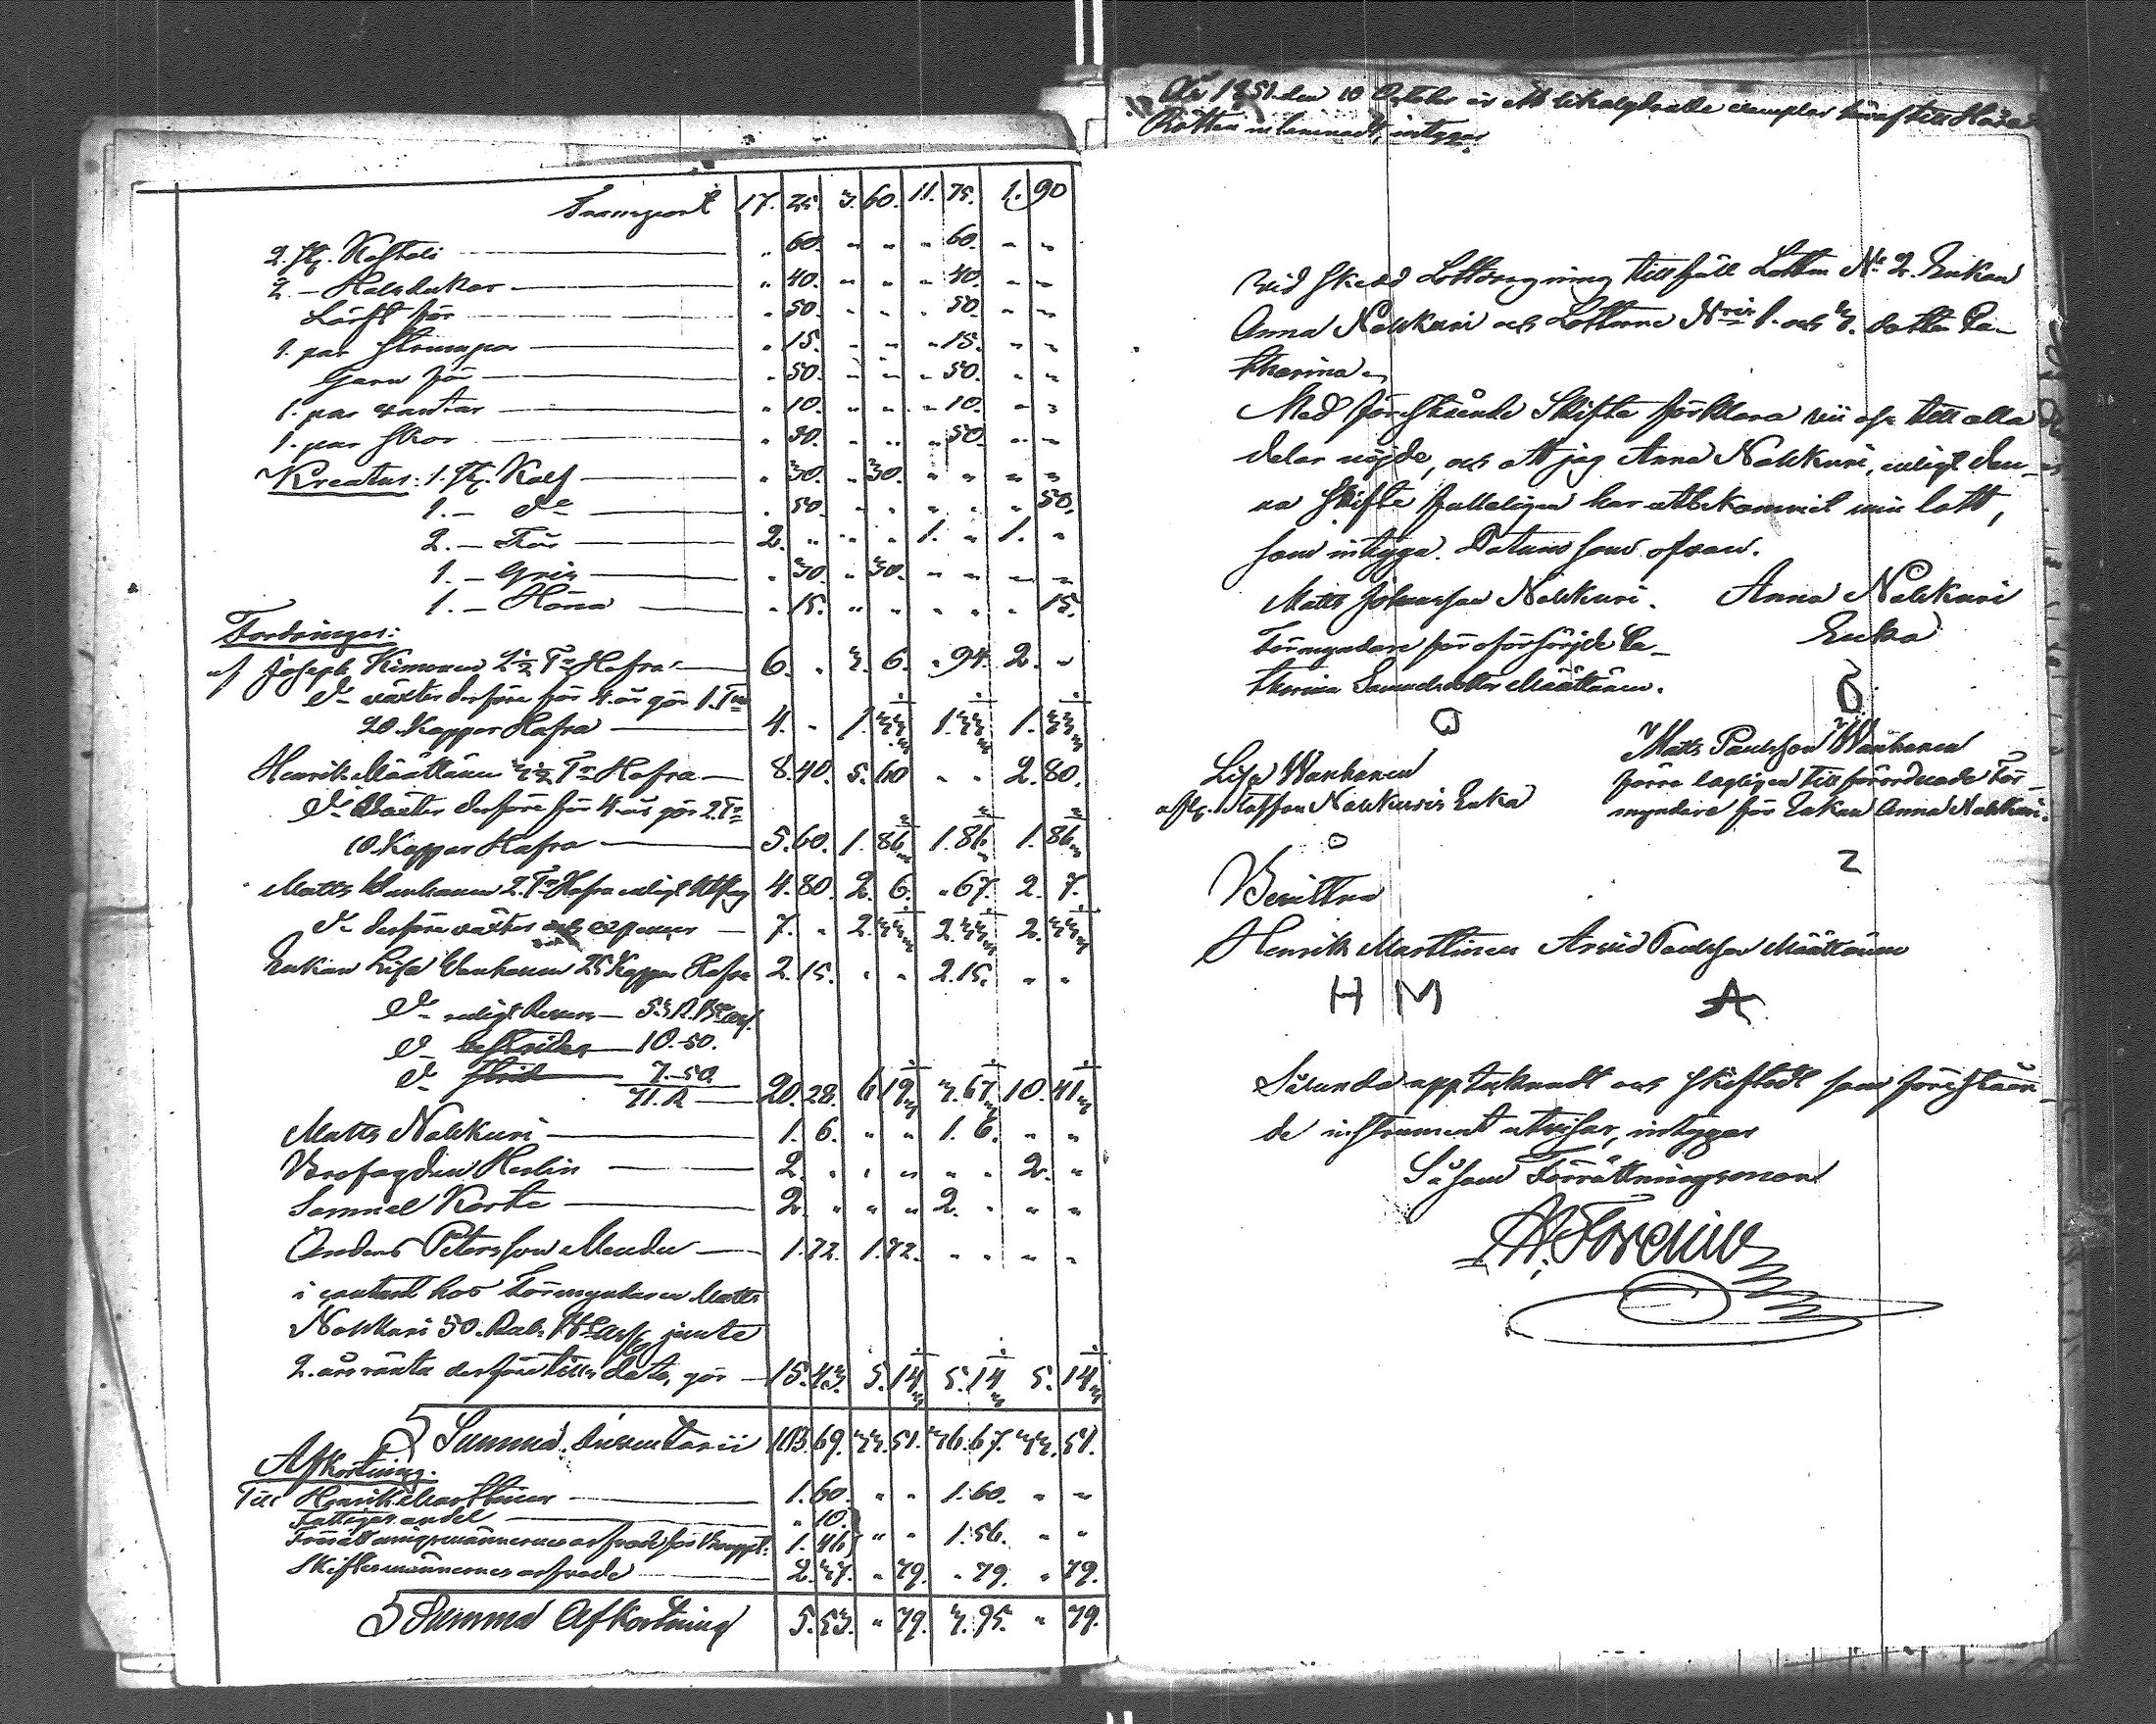 Transport 17. 25. 3. 60. 11. 75. 1. 90
2. st. Kostoli " 60. " " " 60. " "
2. — Halsdukar " 40. " " " 40. " "
Lärft för " 50. " " " 50. " "
1. par Strumpor " 15. " " " 15. " "
Garn för " 50. " " " 50. " "
1. par vantar " 10. " " " 10. " "
1. par Skor " 50. " " " 50. " "
Kreatur: 1. st. Kalf " 30. " 30. " " " "
1. — do " 50. " " " " " 50.
2. — Får 2. " " " 1. " 1. "
1. — Gris " 30. " 30. " " " "
1. — Höna " 15. " " " " " 15.
Fordringar:
af Joseph Kimonen 2½ Tr Hafra 6. " 3. 6. " 94. 2. "
do växter derföre för 4. år gör 1. Tna
20. Kappar Hafra 4. " 1. 33⅓ 1. 33⅓ 1. 33⅓
Henrik Määttänen 3½ Tr Hafra 8. 40. 5. 60 " " 2. 80.
do Växter derföre för 4. år gör 2. Tr
10. Kappar Hafra 5. 60. 1. 86⅔ 1. 86⅔ 1. 86⅔
Matts Wanhanen 2. Tr Hafra enligt Utslag 4. 80. 2. 6. " 67. 2. 7.
do derföre växter och expenser 7. " 2. 33⅓ 2. 33⅓ 2. 33⅓
Enkan Lisa Wanhanen 25 Kappar Hafra 2. 15. " " 2. 15. " "
do enligt Revers — 53 R. Bco ass.
do bestrider — 10. 50.
do 7. 50.
71. R 20. 28. 6. 19⅓ 3. 67⅓ 10. 41⅓
Matts Nokkuri 1. 6. " " 1. 6. " "
Brofogden Herlin 2. " " " " " 2. "
Samuel Korte 2. " " " 2. " " "
Anders Petersson Mendu 1. 72. 1. 72. " " " "
i contant hos Förmyndaren Matts
Nokkuri 50. Rub. Bco ass. jemte
2. års ränta derföre till dato, gör 15. 43. 5. 14⅓ 5. 14⅓ 5. 14⅓
Summa Inventarii 103. 69. 33. 51. 36. 67. 33. 51.
Afkortning.
Till Henrik Marttinen 1. 60. " " 1. 60. " "
Fattigas andel " 10.
Förrättningsmännernes arfvode för Uppt: 1. 46 " " 1. 56. " "
Skiftesmännernes arfvode 2. 37. " 79. " 79. " 79.
Summa Afkortning 5. 53. " 79. 3. 95. " 79.
År 1851. den 10 October är ett likalydande exemplar häraf till Härads
Rätten inlemnadt, intygar.
Vid skedd Lottdragning tillföll Lotten No 2. Enkan
Anna Nokkuri och Lotterne Nris 1. och 3. dottren Ca-
tharina.
Med förestående Skifte förklara vii oss till alla
delar nöjde, och att jag Anna Nokkuri, enligt den-
na Skifte fulleligen har utbekommit min lott,
som intyga. Datum som ofvan.
Matts Johansson Nokkuri. Anna Nokkuri
Förmyndare för oförsörjde Ca- Enka
tharina Samuelsdotter Määttänen.
Lisa Wanhanen Matts Paulsson Wanhanen
Staffan Nokkuris Enka förre lagligen tillförordnade För-
myndare för Enkan Anna Nokkuri.
Bevittna
Henrik Marttinen Arvid Paulsson Määttänen
H M A
Sålunda upptecknadt och skiftadt som föreståen-
de instrument utvisar, intygar
Såsom Förrättningsman